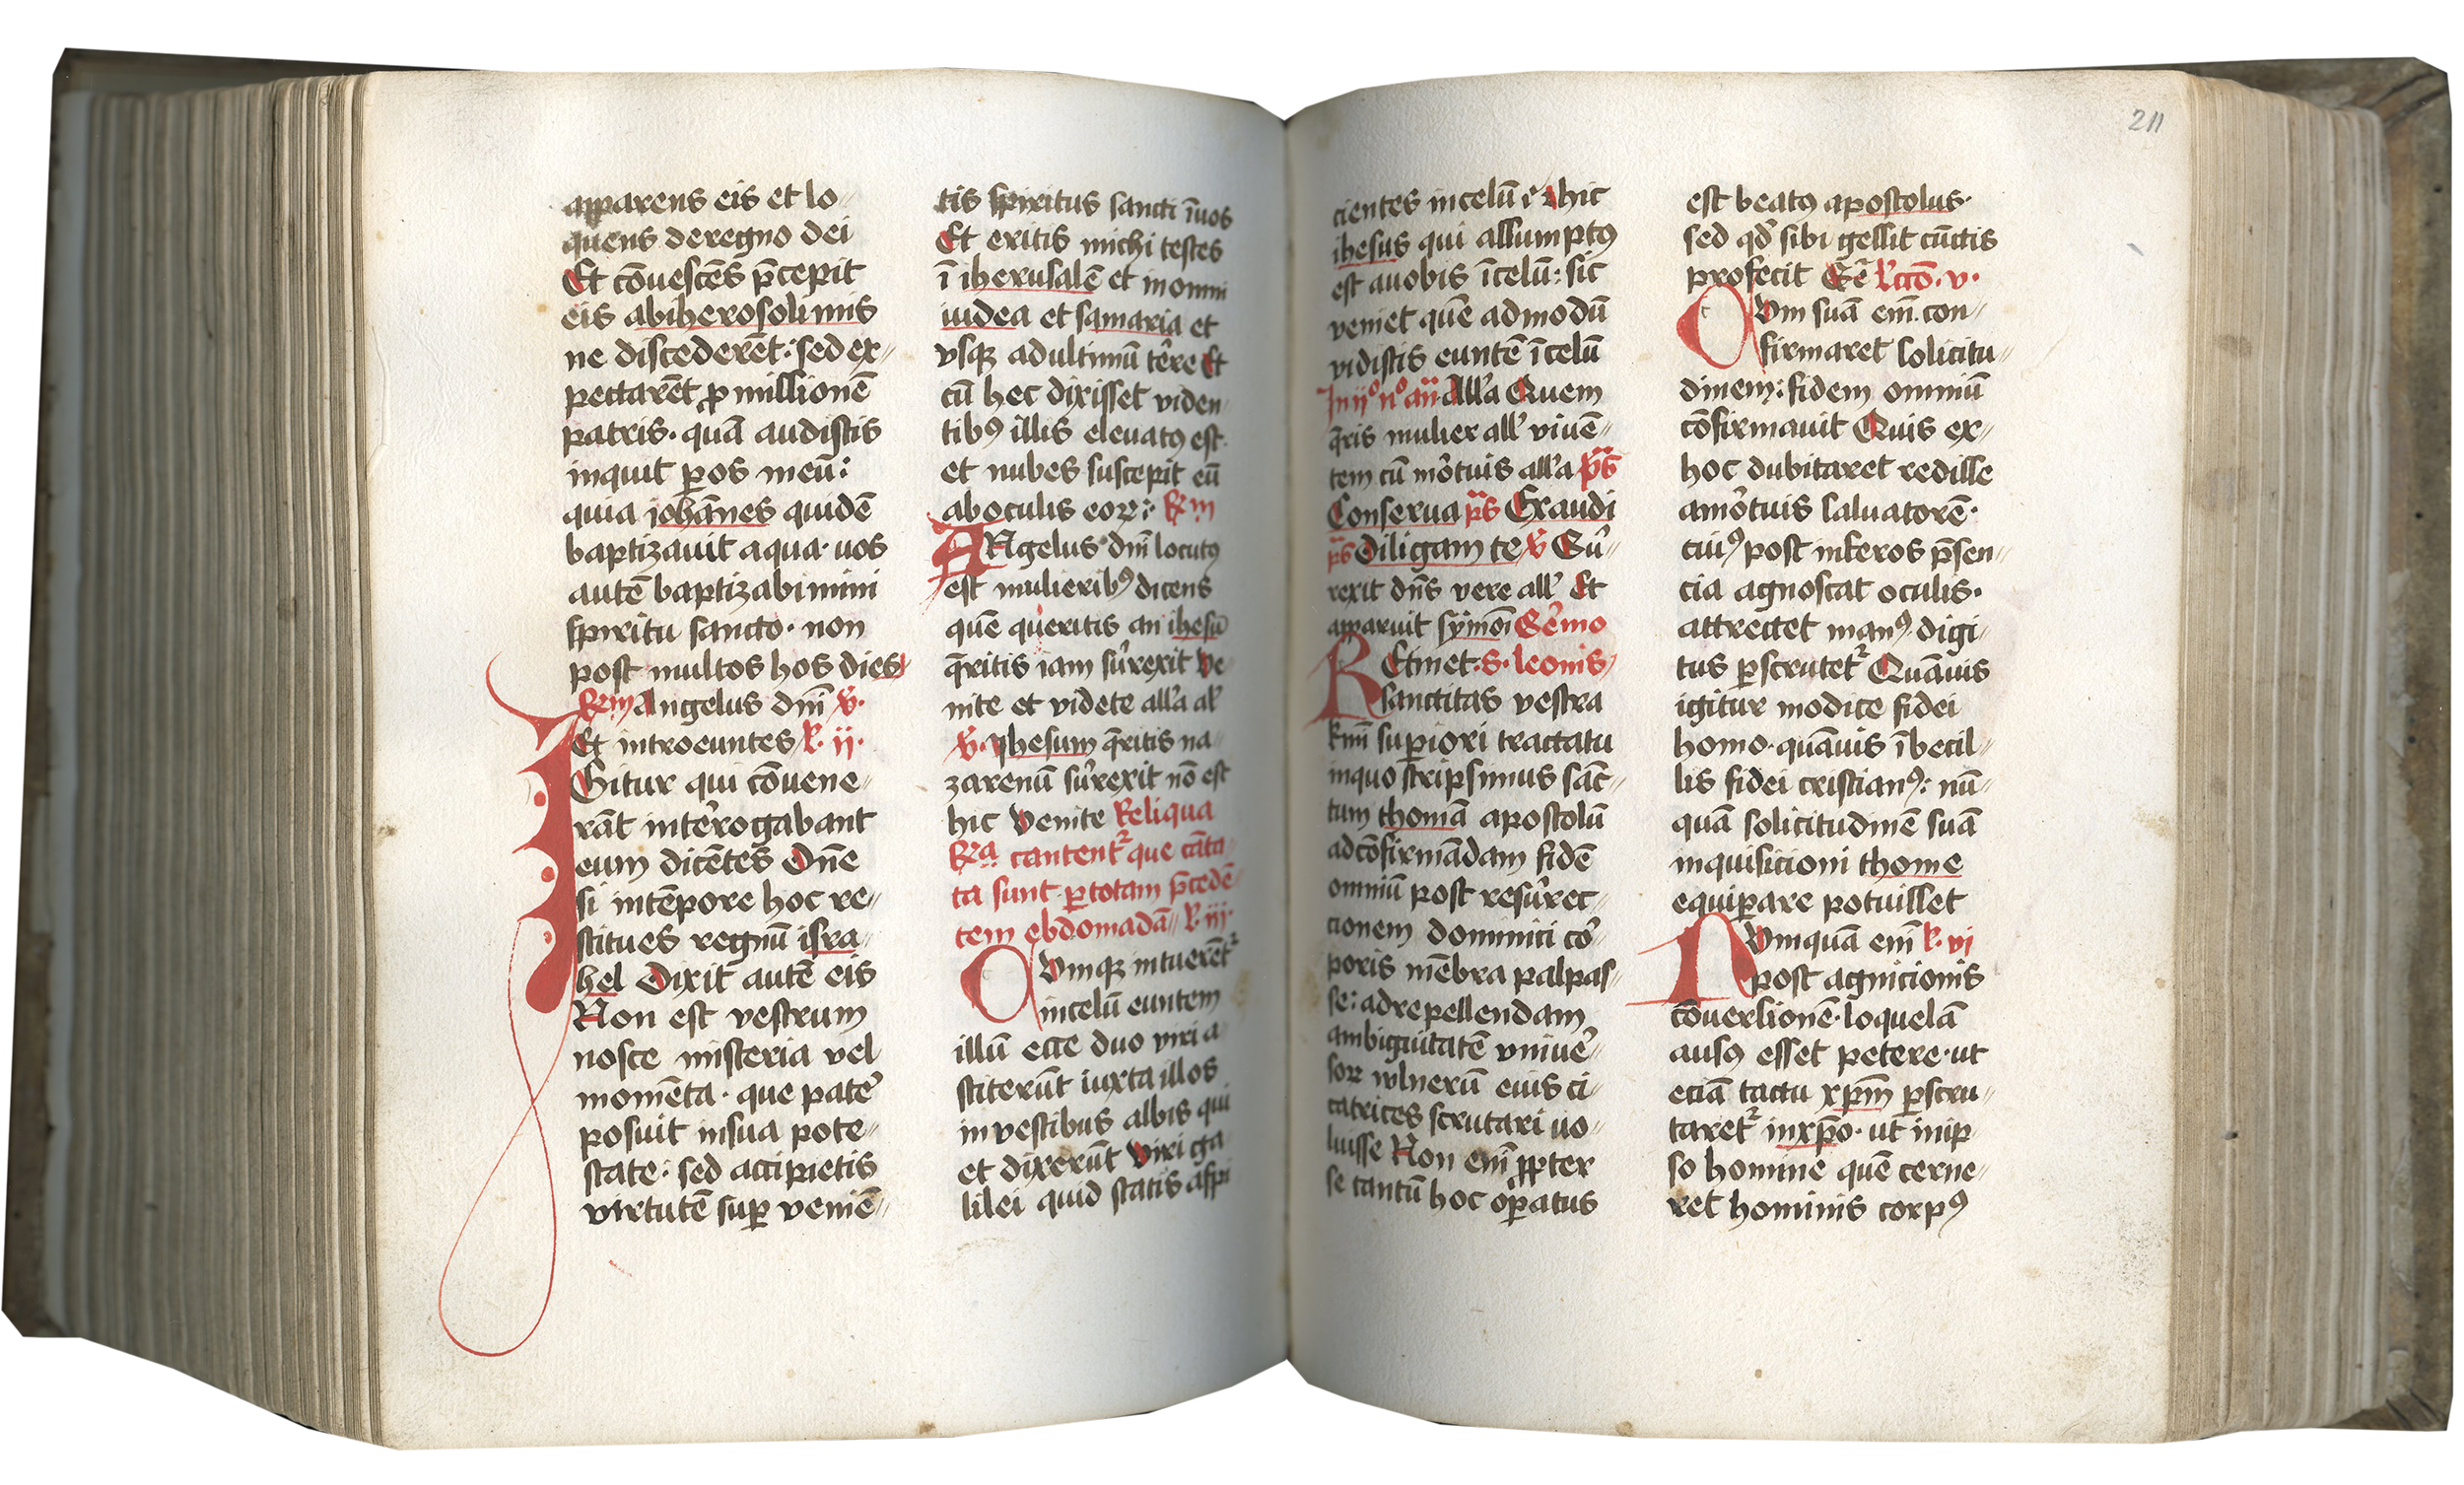 apparens eis et lo-
quens deregno dei
Et cōuescēs p̄cepit
eis abiherosolimis
ne discederēt: sed ex-
pectarēt ꝓmissionē
patris· quā audistis
inquit ꝑos meū:
quia iohānes quidē
baptizauit aqua· uos
autē baptizabimini
spiritu sancto· non
post multos hos dies
Angelus dnī v̄·
Et introeuntes l̄· ij·
Igitur qui cōuene-
rāt interogabant
eum dicētes Dn̄e
si intēpore hoc re-
stitues regnū isra-
hel Dixit autē eis
Non est vestrum
nosce misteria vel
momēta· que pater
posuit insua pote-
state· sed accipietis
virtutē suꝑ veniē-
tis spiritus sancti īuos
Et eritis michi testes
ī iherusalē et inomni
iudea et samaria et
vsqꝫ adultimū terre Et
cū hec dixisset viden
tibꝯ illis eleuatꝯ est·
et nubes suscepit eū
aboculis eoꝝ:
ANgelus dnī locutꝯ
est mulieribꝯ dicens
quē queritis an ihesū
q̄ritis iam surexit Ve-
nite et videte all'a al'
v̄· Ihesum q̄ritis na-
zarenū surexit nō est
hic Venite Reliqua
cantent᷑ que cāta-
ta sunt ꝑtotam p̄cedē-
tem ebdomadā l̄· iij·
CVmqꝫ intuerēt᷑
incelū euntem
illū ecce duo viri a-
stiterūt iuxta illos
in vestibus albis qui
et dixerūt Viri ga-
lilei quid statis aspi
cientes incelū hic
ihesus qui assumptꝯ
est auobis īcelū: sic
veniet quē admodū
vidistis euntē īcelū
In ij° n° an̄ All'a Quem
q̄ris mulier all' viuē-
tem cū mortuis all'a p̄s
Conserua p̄s Exaudi
p̄s Diligam te v̄ Sur-
rexit dn̄s vere all' Et
apparuit symoī Sermo
REtinet· s· leonis
sanctitas vestra
superiori tractatu
inquo scripsimus sāc-
tum thomā apostolū
adcōfirmādam fidē
omniū post resurrec-
cionem dominici cor-
poris mēbra palpas-
se: adrepellendam
ambiguitatē vniuer-
soꝝ vulnerū euis ci-
catrices scrutari uo-
luisse Non enī ꝓpter
se tantū hoc oꝑatus
211
est beatꝯ apostolus·
sed qd' sibi gessit cūctis
profecit l'cc̄o· v·
CVm suā enī· con-
firmaret solicitu-
dinem: fidem omniū
cōfirmauit Quis ex-
hoc dubitaret redisse
amortuis saluatorē·
cuiꝯ post inferos p̄sen-
cia agnoscat oculis·
attrectet manꝯ· digi-
tus ꝑscrutet᷑ Quāuis
igitur modice fidei
homo· quāuis ībecil-
lis fidei cristianꝯ: nū-
quā solicitudinē suā
inquisicioni thome
equiꝑare potuisset
NVmquā enī l̄· vi
post agnicionis
cōuersionē· loquelā
ausꝯ esset petere· ut
eciā tactu xp̄m ꝑscru-
taret᷑ inxp̄o· ut inip-
so homine quē cerne-
ret hominis corpꝯ